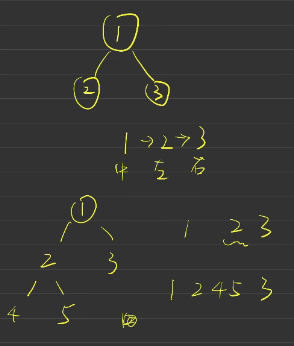 1
2 3
1→2→3
中 左 右
1
2 3
4 5
1 2 3
1 2 4 5 3